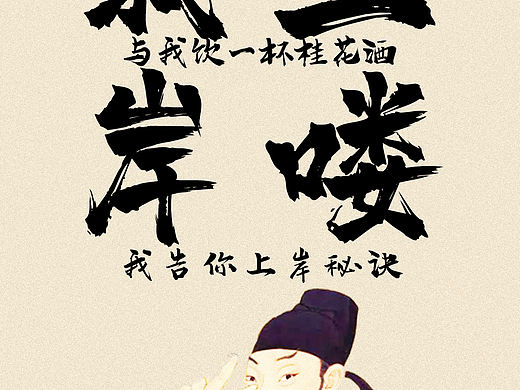 与我饮一杯桂花酒
岸 喽
我告你上岸秘诀